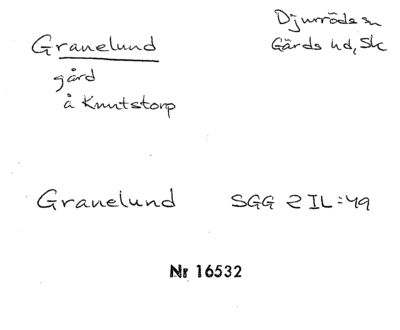 Granelund
gård
å Knutstorp
Djurröds sn
Gärds hd, Sk
Granelund SGG 2 IL:49
Nr 16532